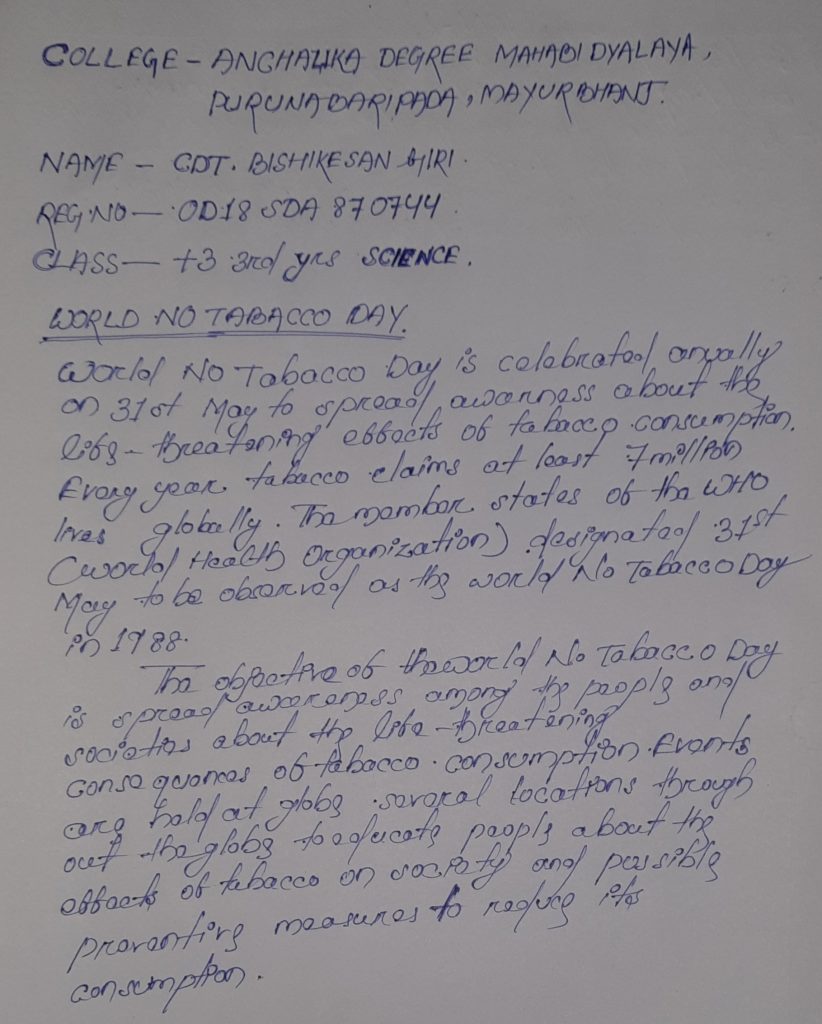 COLLEGE - ANCHALIKA DEGREE MAHABIDYALAYA,
PURUNABARIPADA, MAYURBHANJ.
NAME - CDT. BISHIKESAN GIRI.
REG.NO - OD18 SDA 870744
CLASS - +3 3rd yrs SCIENCE.
WORLD NO TABACCO DAY.
World No Tabacco Day is celebrated anually
on 31st May to spread awarness about the
life-threatening effects of tabacco consumption.
Every year tabacco claims at least 7 million
lives globally. The member states of the WHO
(world Health Organization) designated 31st
May to be observed as the world No Tabacco Day
in 1988.
The objective of the world No Tabacco Day
is spread awareness among the people and
societies about the life-threatening
consequences of tabacco consumption. Events
are held at globe several locations through
out the globe to educate people about the
effects of tabacco on society and possible
preventive measures to reduce its
consumption.